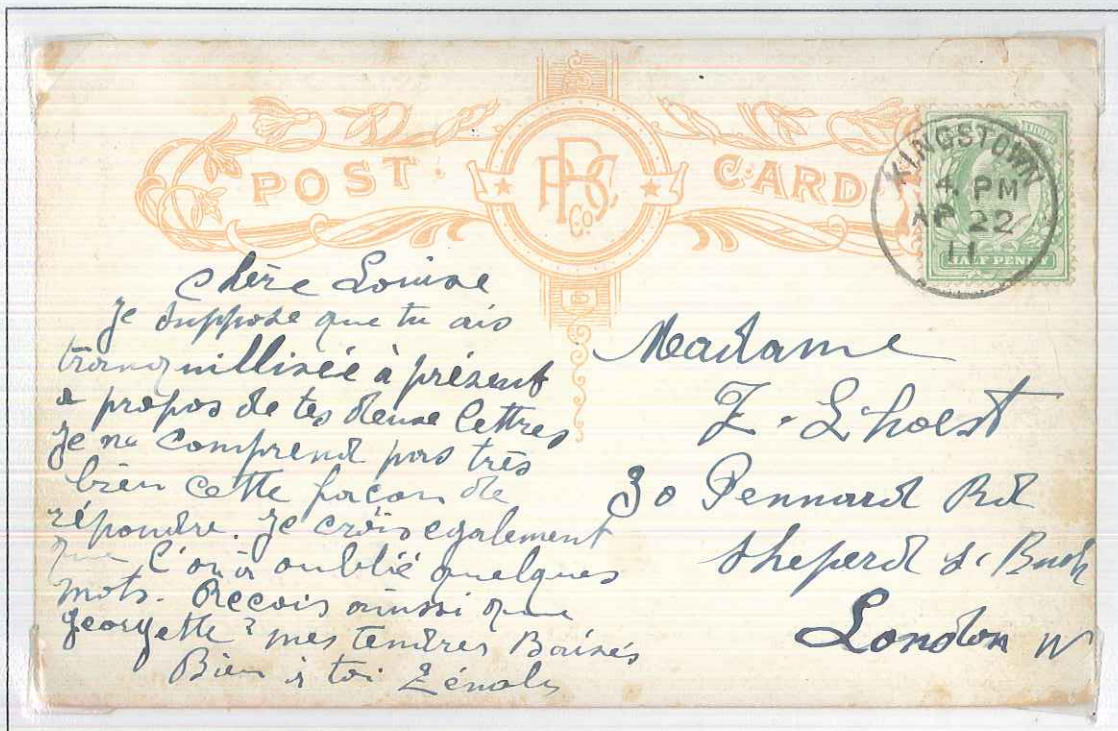 POST CARD
PPSCo
KINGSTOWN
4. PM
AP 22
11
HALF PENNY
chère Louise
Je suppose que tu ais
tranquillisée à présent
a propos de tes deux lettres
Je ne comprend pas très
bien cette facon de
répondre. Je crois egalement
que l'on à oublié quelques
mots. Reçois ainsi que
georgette mes tendres Baisés
Bien à toi
Madame
Z. Lhoest
30 Pennard Rd
Sheperd s. Bush
London W